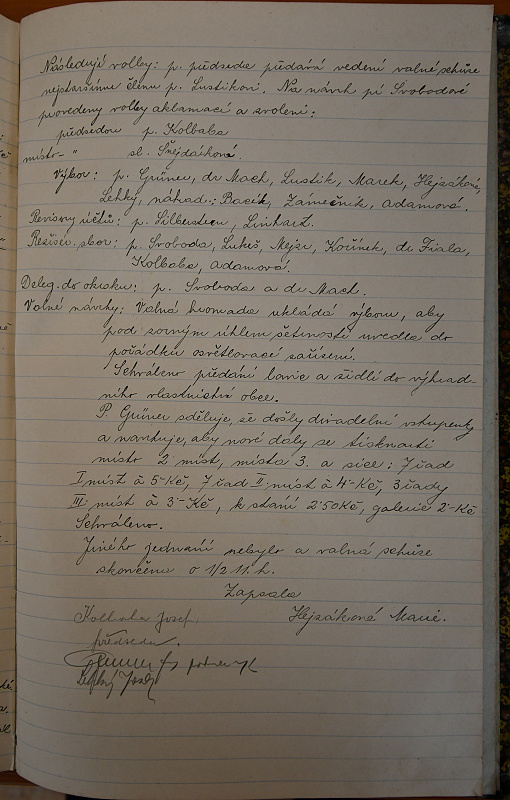 Následují volby: p. předseda předává vedení valné schůze
nejstaršímu členu p. Lustikovi. Na návrh pí Svobodové
provedeny volby aklamací a zvoleni:
předsedou p. Kolbaba
místo- " sl. Šnejdárková.
Výbor: p. Grüner, dr Mach, Lustik, Marek, Hejzáková,
Lehký, náhrad.: Bacík, Zámečník, Adamová.
Revisory účtů: p. Silberstern, Linhart.
Režisér. sbor: p. Svoboda, Lukeš, Mejzr, Kořínek, dr Fiala,
Kolbaba, Adamová.
Deleg. do okrsku: p. Svoboda a dr Mach.
Volné návrhy: Valná hromada ukládá výboru, aby
pod zorným úhlem šetrnosti uvedla do
pořádku osvětlovací zařízení.
Schváleno předání lavic a židlí do výhrad-
ního vlastnictví obce.
P. Grüner sděluje, že došly divadelní vstupenky
a navrhuje, aby nové daly se tisknouti
místo 2 míst, místa 3. a sice: 7 řad
I míst à 5-Kč, 7 řad II míst à 4-Kč, 3 řady
III míst à 3-Kč, k stání 2·50Kč, galerie 2-Kč
Schváleno.
Jiného jednání nebylo a valná schůze
skončena o 1/2 11. h.
Zapsala
Kolbaba Josef Hejzáková Marie.
předseda.
Grüner
Lehký Josef